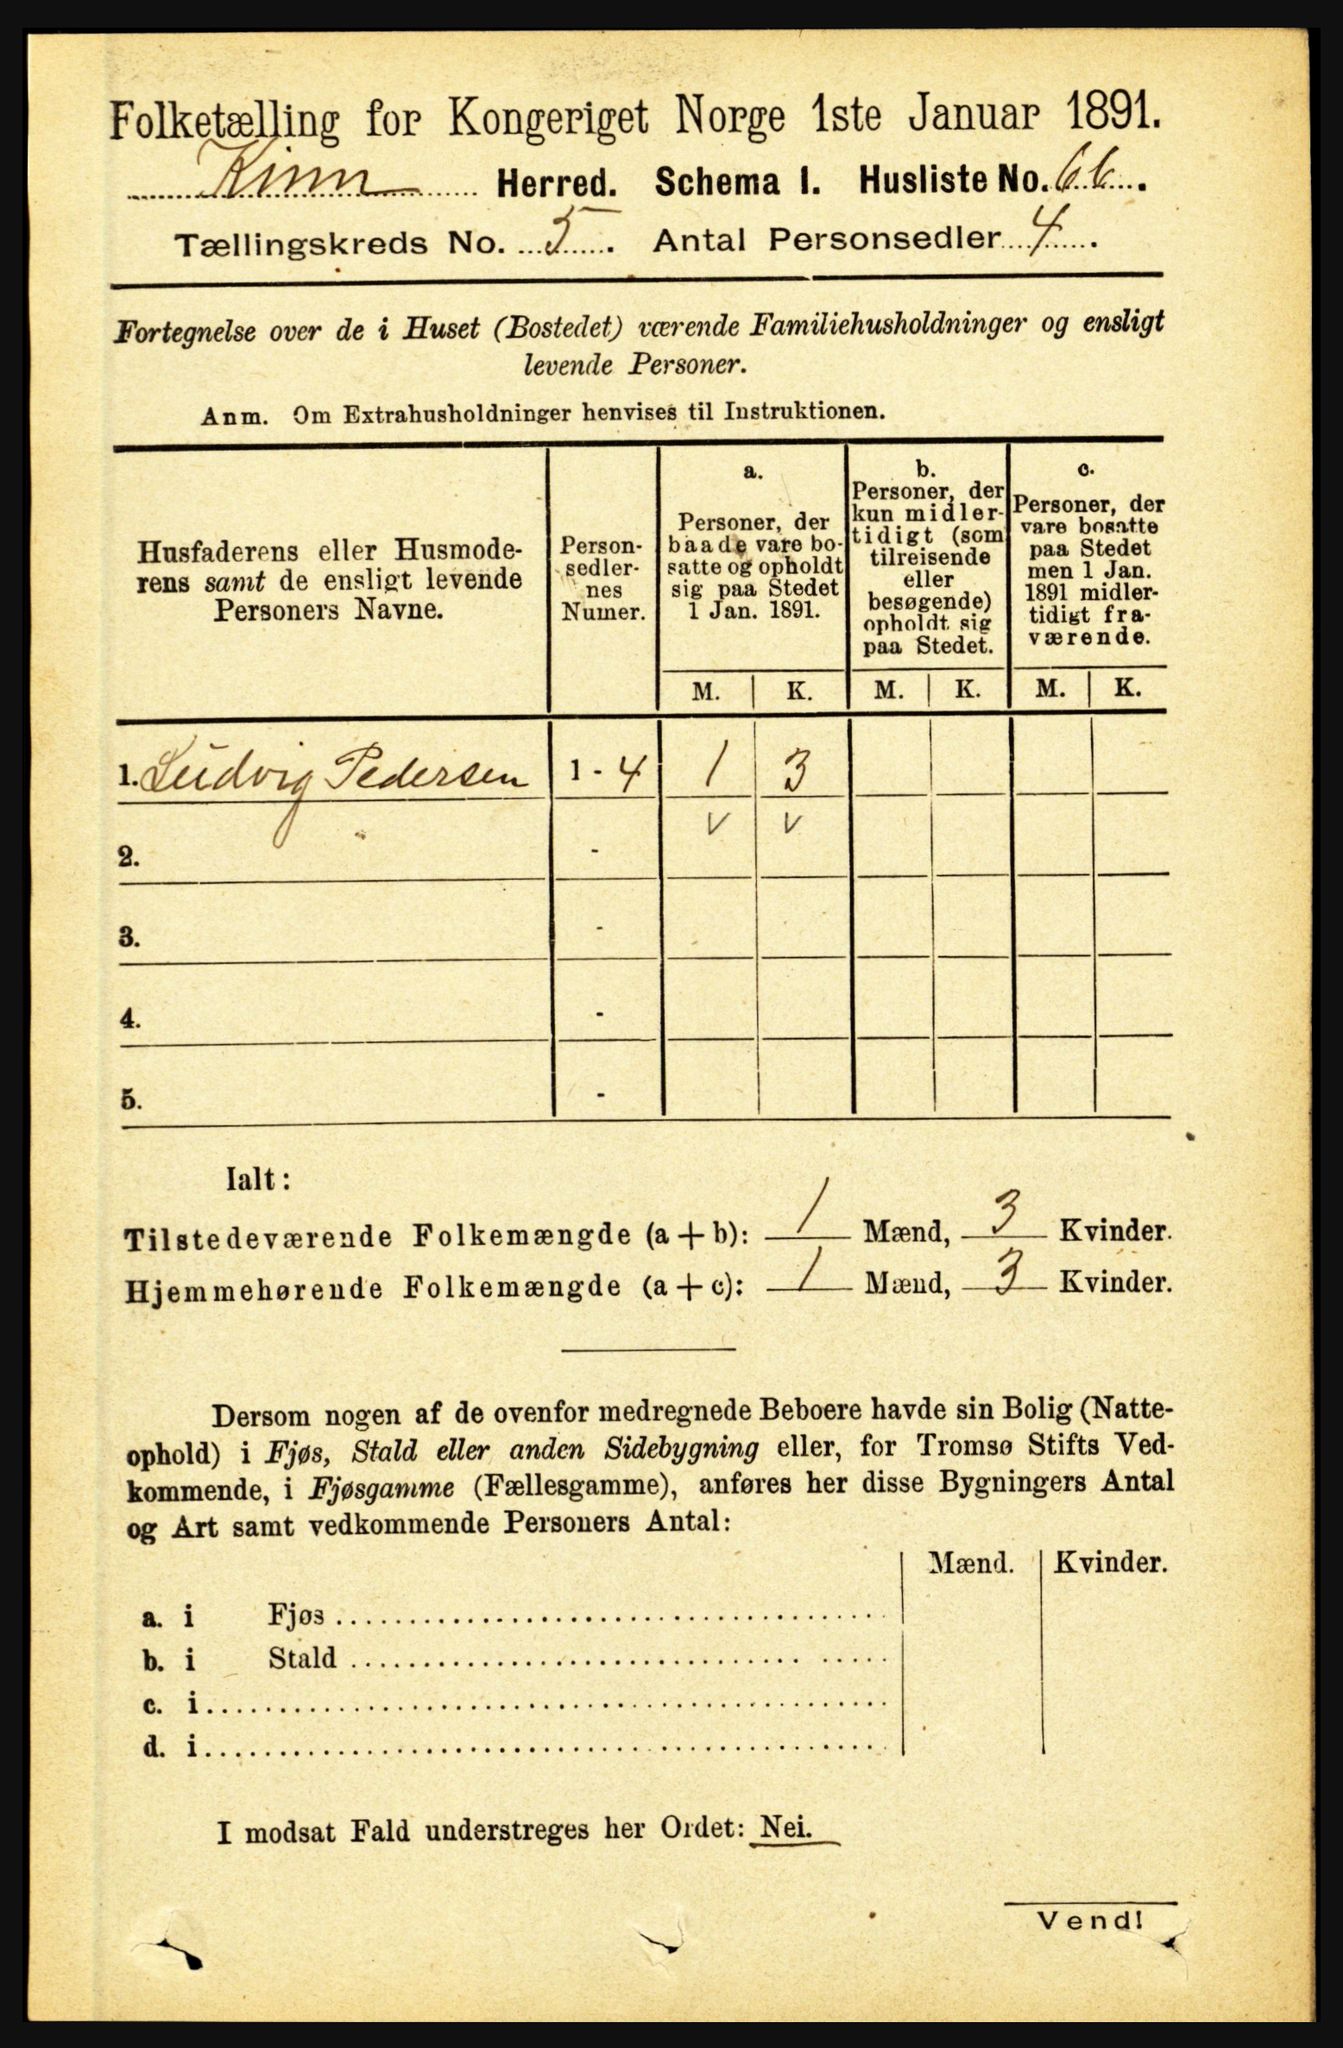 Folketælling for Kongeriget Norge 1ste Januar 1891.
Kinn Herred. Schema I. Husliste No. 66.
Tællingskreds No. 5. Antal Personsedler 4.
Fortegnelse over de i Huset (Bostedet) værende Familiehusholdninger og ensligt
levende Personer.
Anm. Om Extrahusholdninger henvises til Instruktionen.
Husfaderens eller Husmode-
rens samt de ensligt levende
Personers Navne.
Person-
sedler-
nes
Numer.
a.
Personer, der
baade vare bo-
satte og opholdt
sig paa Stedet
1 Jan. 1891.
b.
Personer, der
kun midler-
tidigt (som
tilreisende
eller
besøgende)
opholdt sig
paa Stedet.
c.
Personer, der
vare bosatte
paa Stedet
men 1 Jan.
1891 midler-
tidigt fra-
værende.
M. K. M. K. M. K.
1. Ludvig Pedersen 1 - 4 1 3
v v
2. -
3. -
4. -
5. -
Ialt:
Tilstedeværende Folkemængde (a + b): 1 Mænd, 3 Kvinder.
Hjemmehørende Folkemængde (a + c): 1 Mænd, 3 Kvinder.
Dersom nogen af de ovenfor medregnede Beboere havde sin Bolig (Natte-
ophold) i Fjøs, Stald eller anden Sidebygning eller, for Tromsø Stifts Ved-
kommende, i Fjøsgamme (Fællesgamme), anføres her disse Bygningers Antal
og Art samt vedkommende Personers Antal:
Mænd. Kvinder.
a. i Fjøs
b. i Stald
c. i
d. i
I modsat Fald understreges her Ordet: Nei.
Vend!